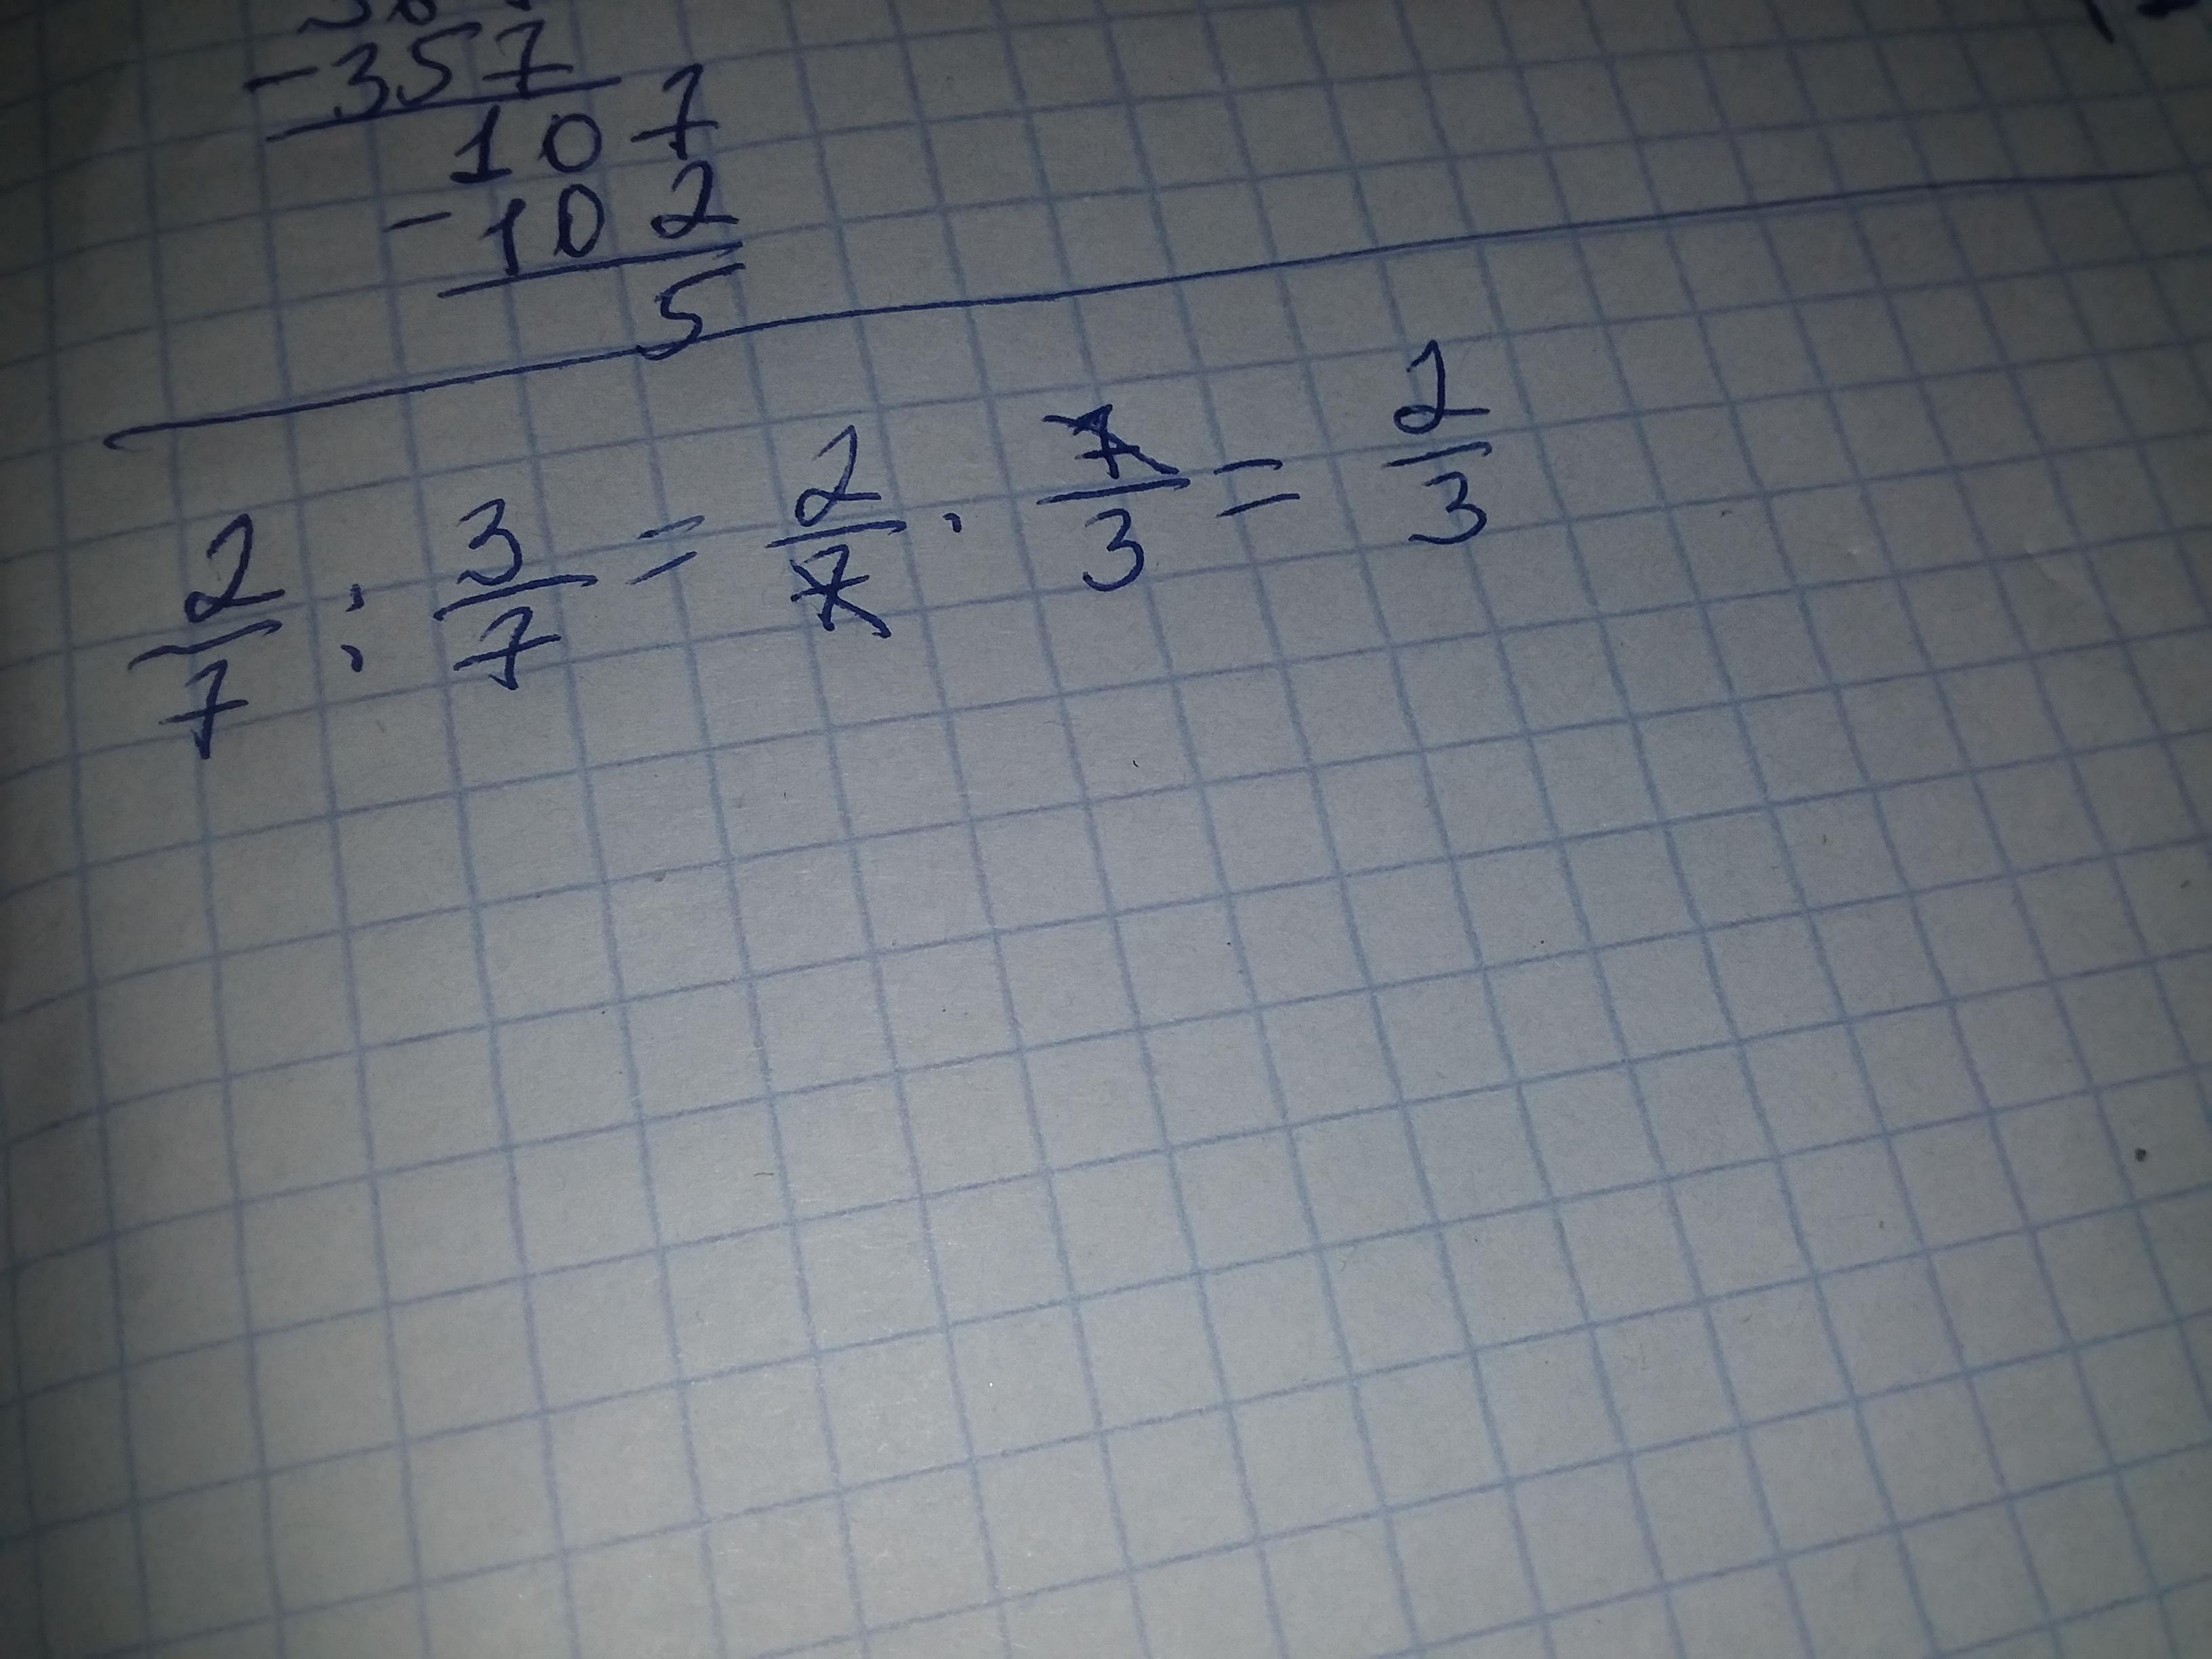 -357
107
-102
5
2/7 : 3/7 = 2/7 · 7/3 = 2/3